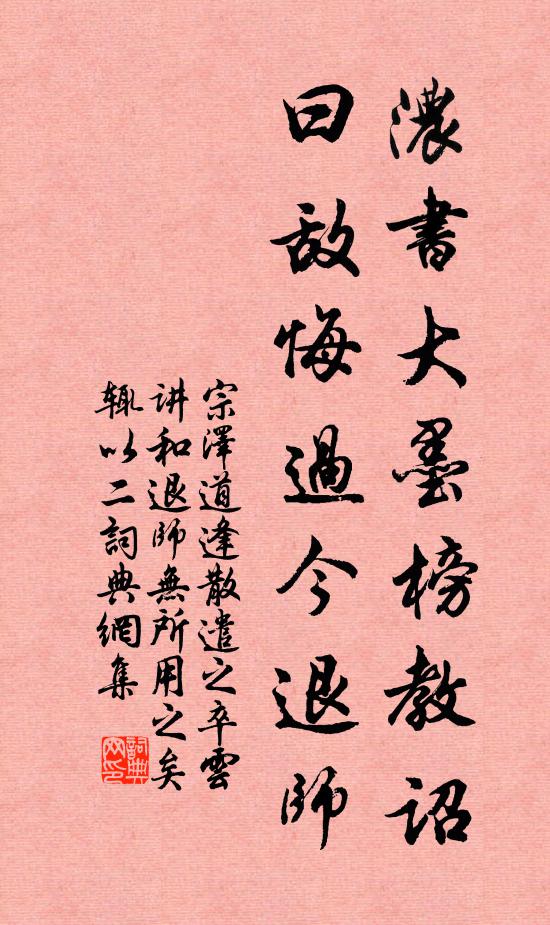 濃書大墨榜教詔
曰敵悔過今退師
宗澤道逢散遣之卒雲
讲和退師無所用之矣
輒以二詞典網集
詞典網印